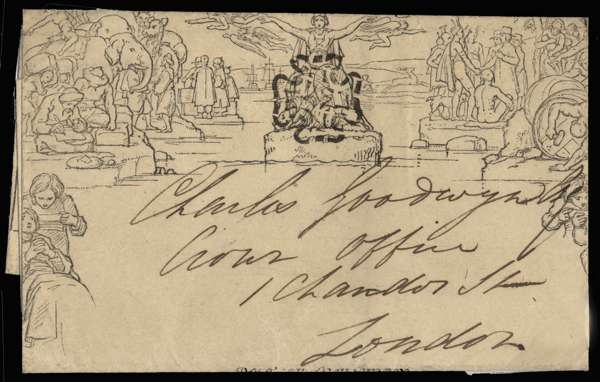 Charles Goodwyn Esq
Crown Office
1 Chandos St
London